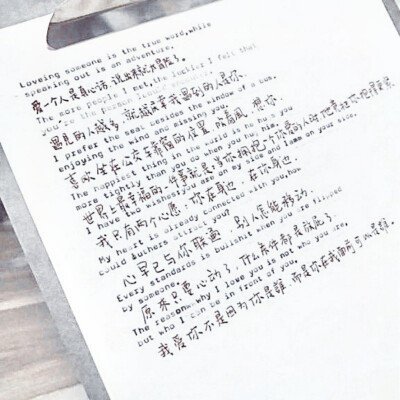 Loveing someone is the true word,while
speaking out is an adventure.
爱一个人是真心话，说出来就冒险了。
The more people I met,the luckier I felt that
you're the person I could
遇见的人越多，就越庆幸我遇到的人是你。
I prefer the seat besides the window of a bus,
enjoying the wind and missing you.
喜欢坐在公交车靠窗的位置，吹着风，想你。
The happiest thing in the world is he hugs you
more tightly than you do when you hug him.
世界上最幸福的一件事就是当你拥抱一个你爱的人时他竟把你抱得更紧
I have two wishes:you are on my side and Iams on your side.
我只有两个心愿：你在身边，在你身边
My heart is already connected with you,how
could authers attract you?
心早已与你联通，别人怎能移动.
Every standards is bullshit when you are fliped
by someone.
原来只要心动了，什么条件都是放屁了.
The reasonwwhy I love you is not who you are,
but who I can be in front of you.
我爱你不是因为你是谁，而是你在我面前可以是谁.